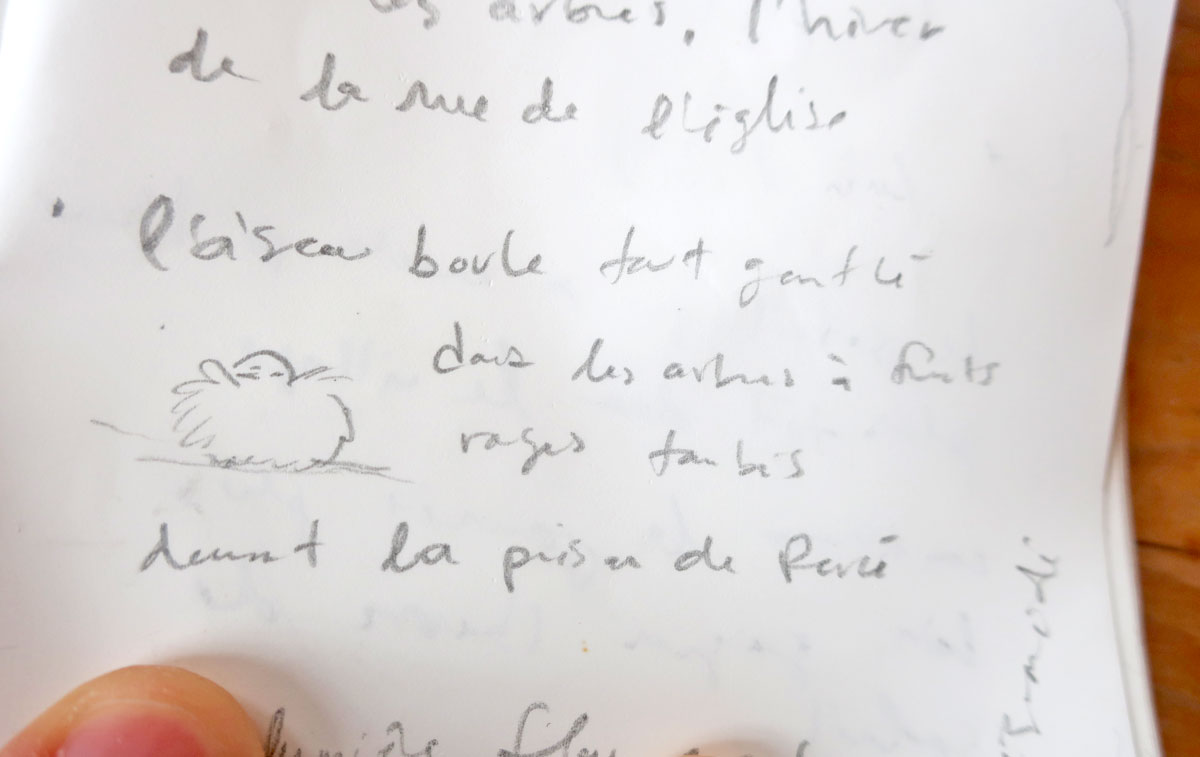 les arbres, l'hiver
de la rue de l'église
• l'oiseau boule tout gonflé
dans les arbres à fruits
rouges tombés
devant la prison de Percé
lumière
samedi